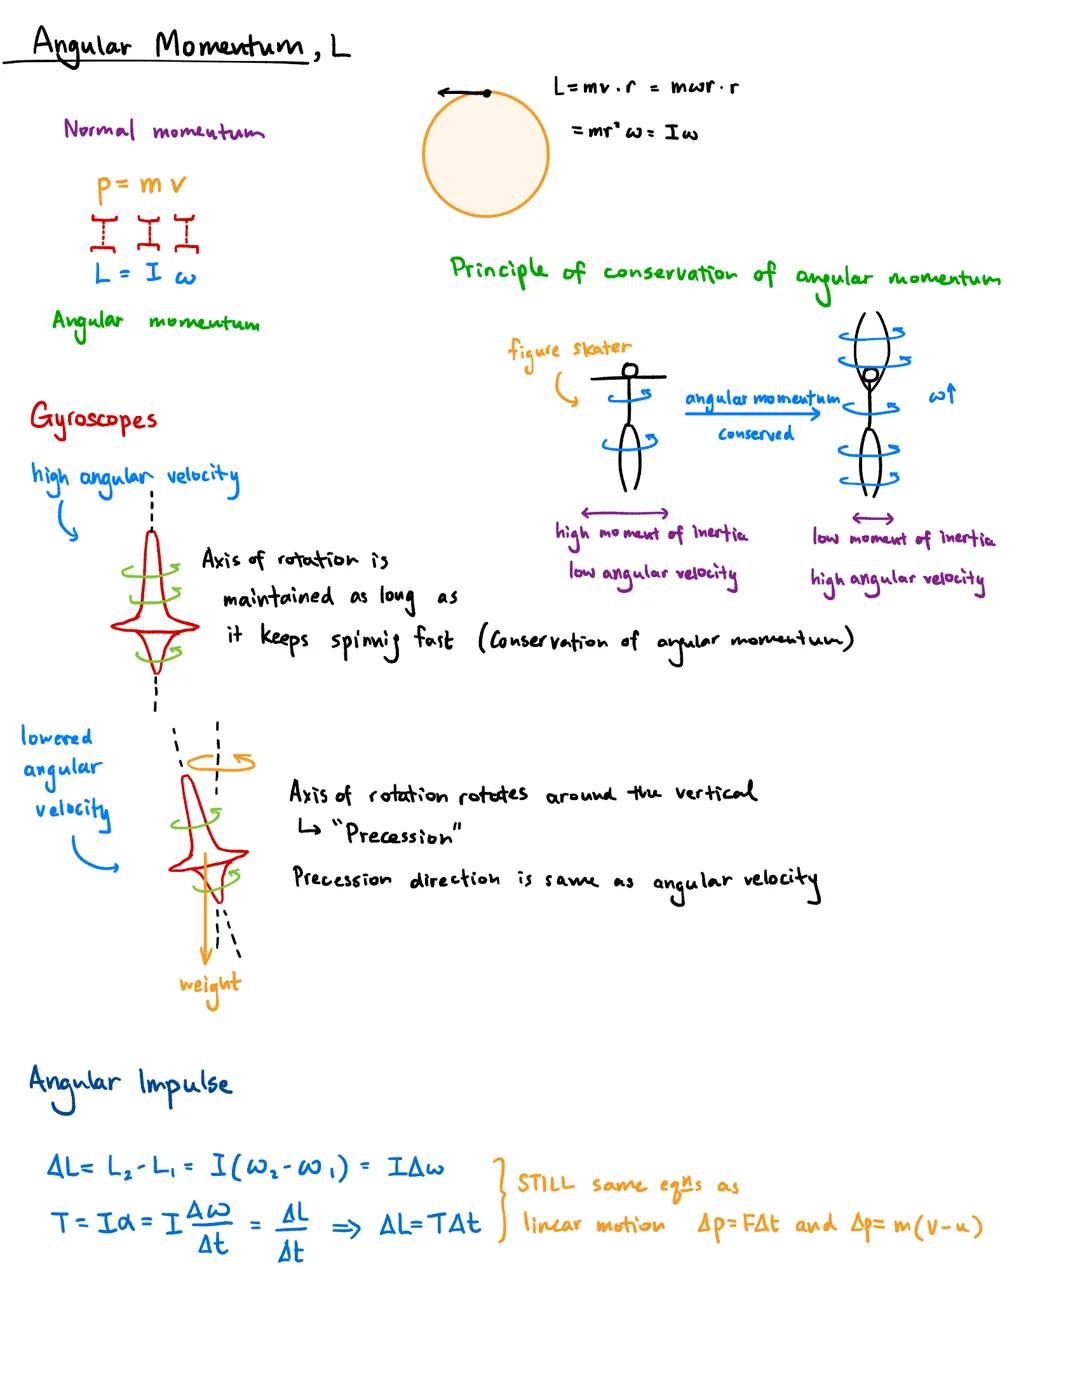 Angular Momentum, L
L = mv · r = mωr · r
= mr² ω = Iω
Normal momentum
p = m v
L = I ω
Angular momentum
Principle of conservation of angular momentum
figure skater
angular momentum
conserved
ω↑
high moment of inertia
low angular velocity
low moment of inertia
high angular velocity
Gyroscopes
high angular velocity
Axis of rotation is
maintained as long as
it keeps spinnig fast (Conservation of angular momentum)
lowered
angular
velocity
Axis of rotation rotates around the vertical
↳ "Precession"
Precession direction is same as angular velocity
weight
Angular Impulse
ΔL = L₂ - L₁ = I(ω₂ - ω₁) = IΔω
T = Iα = I Δω/Δt = ΔL/Δt ⇒ ΔL = TΔt
STILL same eqns as
linear motion Δp = FΔt and Δp = m(v - u)